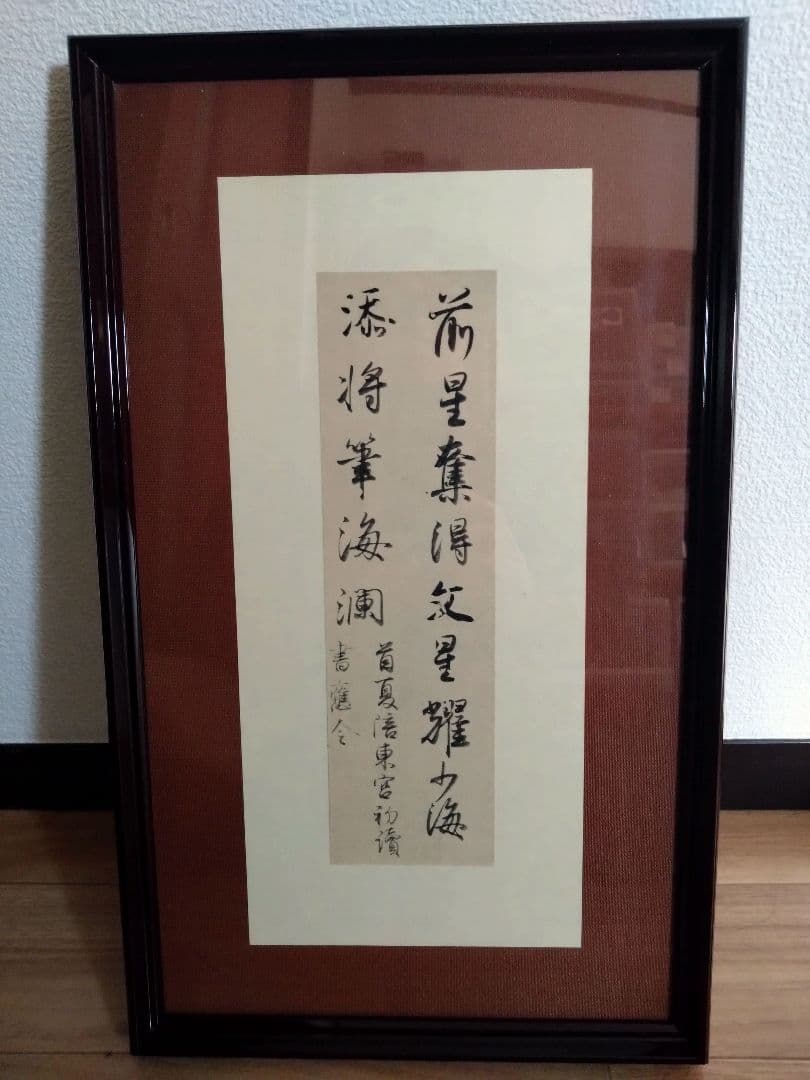 前星奪得文星耀少海
添將筆海瀾
首夏陪東宮初讀
書應令